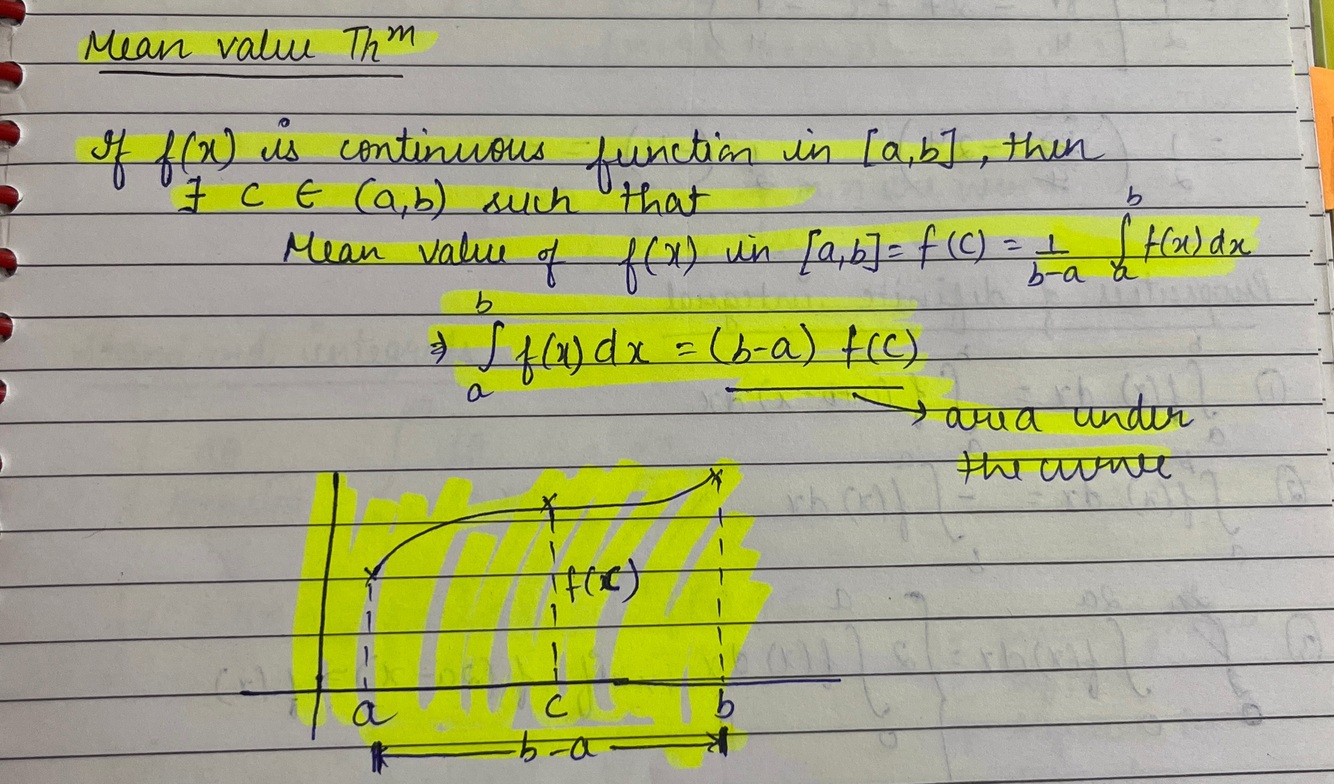 Mean value Thᵐ
If f(x) is continuous function in [a,b], then
∃ c ∈ (a,b) such that
Mean value of f(x) in [a,b] = f(c) = 1/(b-a) ∫ₐᵇ f(x) dx
⇒ ∫ₐᵇ f(x) dx = (b-a) f(c)
→ area under
the curve
f(c)
a c b
b-a